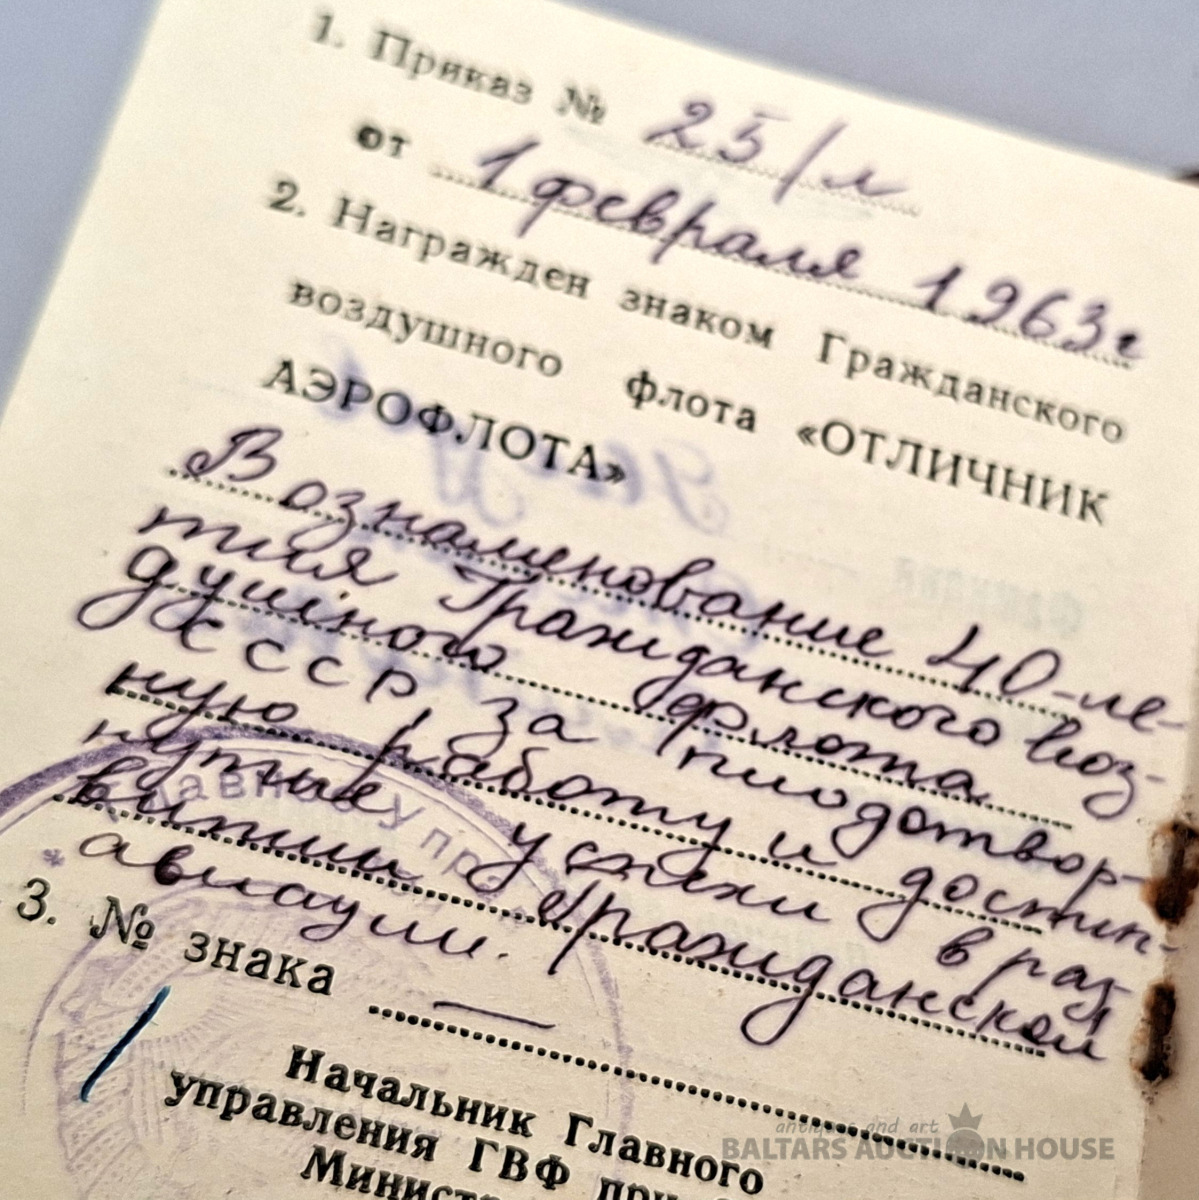 1. Приказ № 25/л
от 1 февраля 1963г
2. Награжден знаком Гражданского
воздушного флота «ОТЛИЧНИК
АЭРОФЛОТА»
В ознаменование 40-ле-
тия Гражданского воз-
душного флота
СССР, за плодотвор-
ную работу и достиг-
нутые успехи в раз-
витии Гражданской
авиации.
Главное упр
3. № знака —
Начальник Главного
управления ГВФ при
Минист
antiques and art
BALTARS AUCTION HOUSE